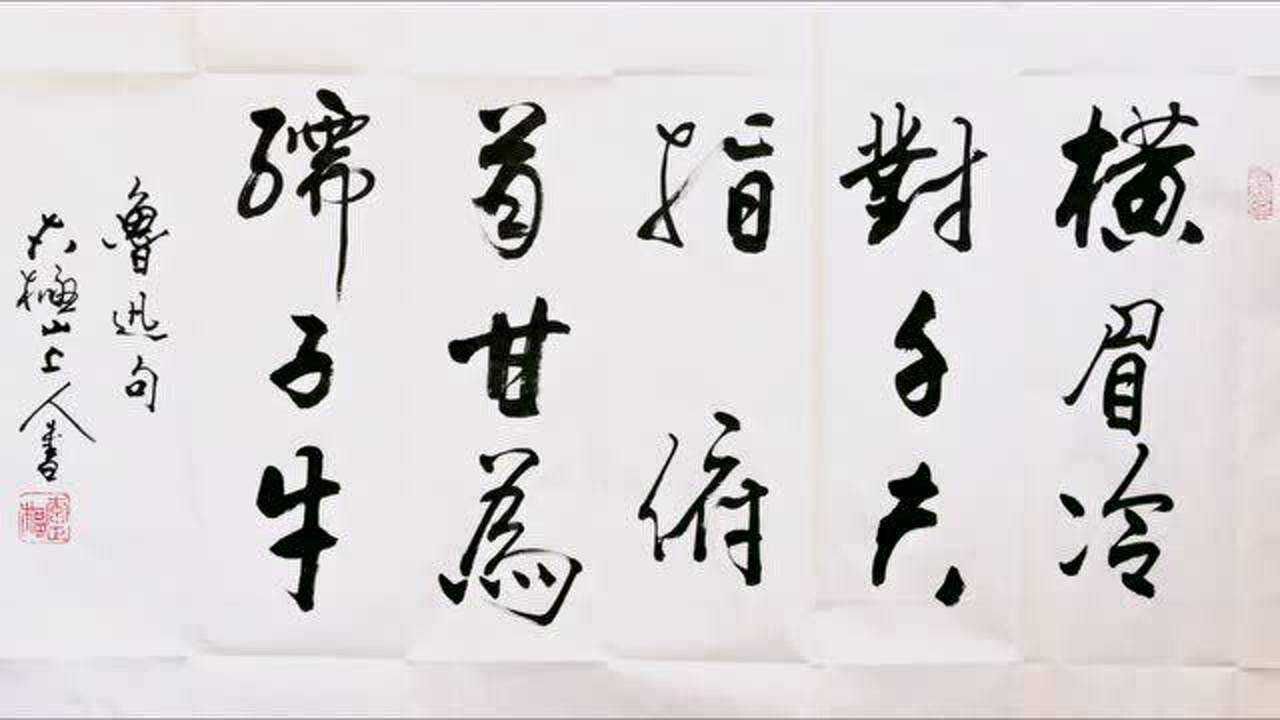 橫眉冷
對千夫
指俯
首甘為
孺子牛
魯迅句
太極山上人書